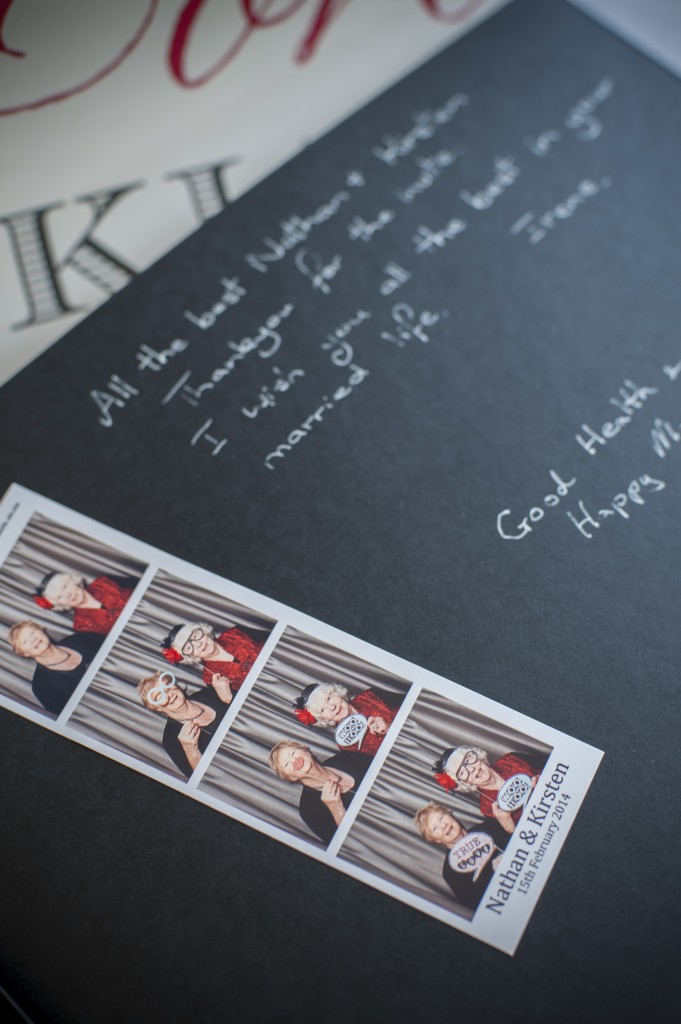 KI
All the best Nathan + Kirsten
Thankyou for the invite.
I wish you all the best in your
married life.
Irene.
Good Health &
Happy M
TRUE
LOVE
Nathan & Kirsten
15th February 2014